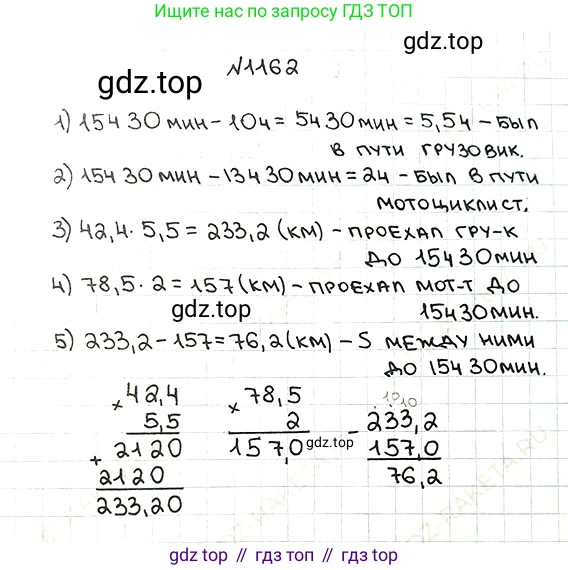 больше по запросу ГДЗ ТОП
gdz.top
№1162
1) 15ч 30 мин - 10ч = 5ч 30 мин = 5,5ч - был
в пути грузовик.
2) 15ч 30 мин - 13ч 30 мин = 2ч - был в пути
мотоциклист.
3) 42,4 · 5,5 = 233,2 (км) - проехал гру-к
до 15ч 30 мин
4) 78,5 · 2 = 157 (км) - проехал мот-т до
gdz.top
15ч 30 мин.
5) 233,2 - 157 = 76,2 (км) - S между ними
до 15ч 30 мин.
× 42,4
5,5
+ 2120
2120
233,20
× 78,5
2
157,0
gdz.top
10 10
- 233,2
157,0
76,2
gdz top // гдз топ // gdz.top // гдз топ